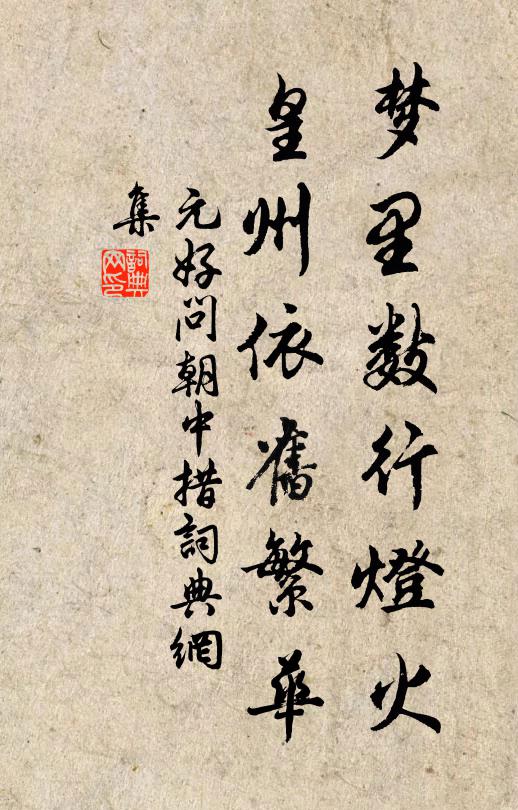 梦里数行燈火
皇州依舊繁華
元好问朝中措詞典網
集
詞典
网印